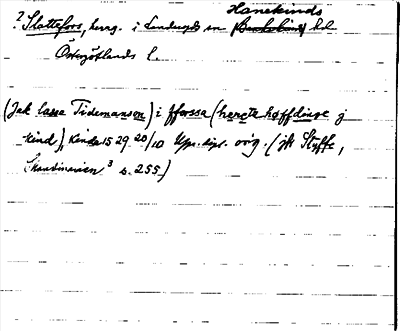 Hanekinds
? Slattefors, herrg. i Landeryds sn (Bankekinds) hd
Östergötlands l.
(Jak lasse Tidemanson) i fforssa (heretz høffdinge j
kind), Kinda 1529 20/10 Upps. dipl. orig. (jfr Styffe,
Skandinavien³ s. 255)